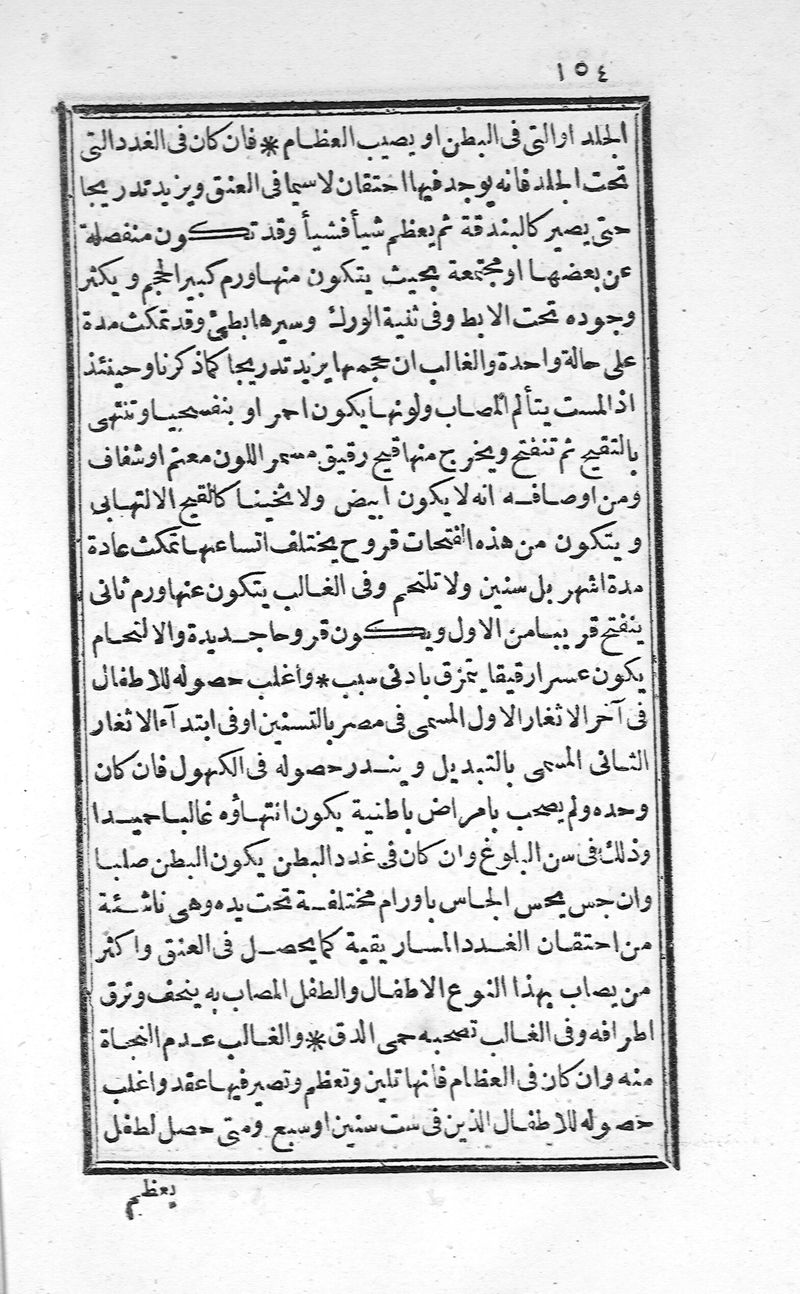 ١٥٤
الجلد اوالتى فى البطن او يصيب العظام * فان كان فى الغدد التى
تحت الجلد فانه يوجد فيها احتقان لاسيما فى العنق ويزيد تدريجا
حتى يصير كالبندقة ثم يعظم شيأ فشيأ وقد تكون منفصلة
عن بعضها او مجتمعة بحيث يتكون منها ورم كبير الحجم ويكثر
وجوده تحت الابط وفى ثنية الورك وسيرها بطئ وقد تمكث مدة
على حالة واحدة والغالب ان حجمها يزيد تدريجا كما ذكرنا وحينئذ
اذا لمست يتألم المصاب ولونها يكون احمر او بنفسجيا وتنتهى
بالتقيح ثم تنفتح ويخرج منها قيح رقيق مسمر اللون معتم او شفاف
ومن اوصافه انه لا يكون ابيض ولا ثخينا كالقيح الالتهابى
ويتكون من هذه الفتحات قروح يختلف اتساعها تمكث عادة
مدة اشهر بل سنين ولا تلتحم وفى الغالب يتكون عنها ورم ثانى
ينفتح قريبا من الاول ويكون قروحا جديدة والالتحام
يكون عسرا رقيقا يتمزق بادنى سبب * واغلب حصوله للاطفال
فى آخر الاثغار الاول المسمى فى مصر بالتسنين اوفى ابتدآء الاثغار
الثانى المسمى بالتبديل ويندر حصوله فى الكهول فان كان
وحده ولم يصحب بامراض باطنية يكون انتهاؤه غالبا حميدا
وذلك فى سن البلوغ وان كان فى غدد البطن يكون البطن صلبا
وان جس يحس الجاس باورام مختلفة تحت يده وهى ناشئة
من احتقان الغدد المساريقية كما يحصل فى العنق واكثر
من يصاب بهذا النوع الاطفال والطفل المصاب به ينحف وترق
اطرافه وفى الغالب تصحبه حمى الدق * والغالب عدم النجاة
منه وان كان فى العظام فانها تلين وتعظم وتصير فيها عقد واغلب
حصوله للاطفال الذين فى ست سنين او سبع ومتى حصل لطفل
يعظم